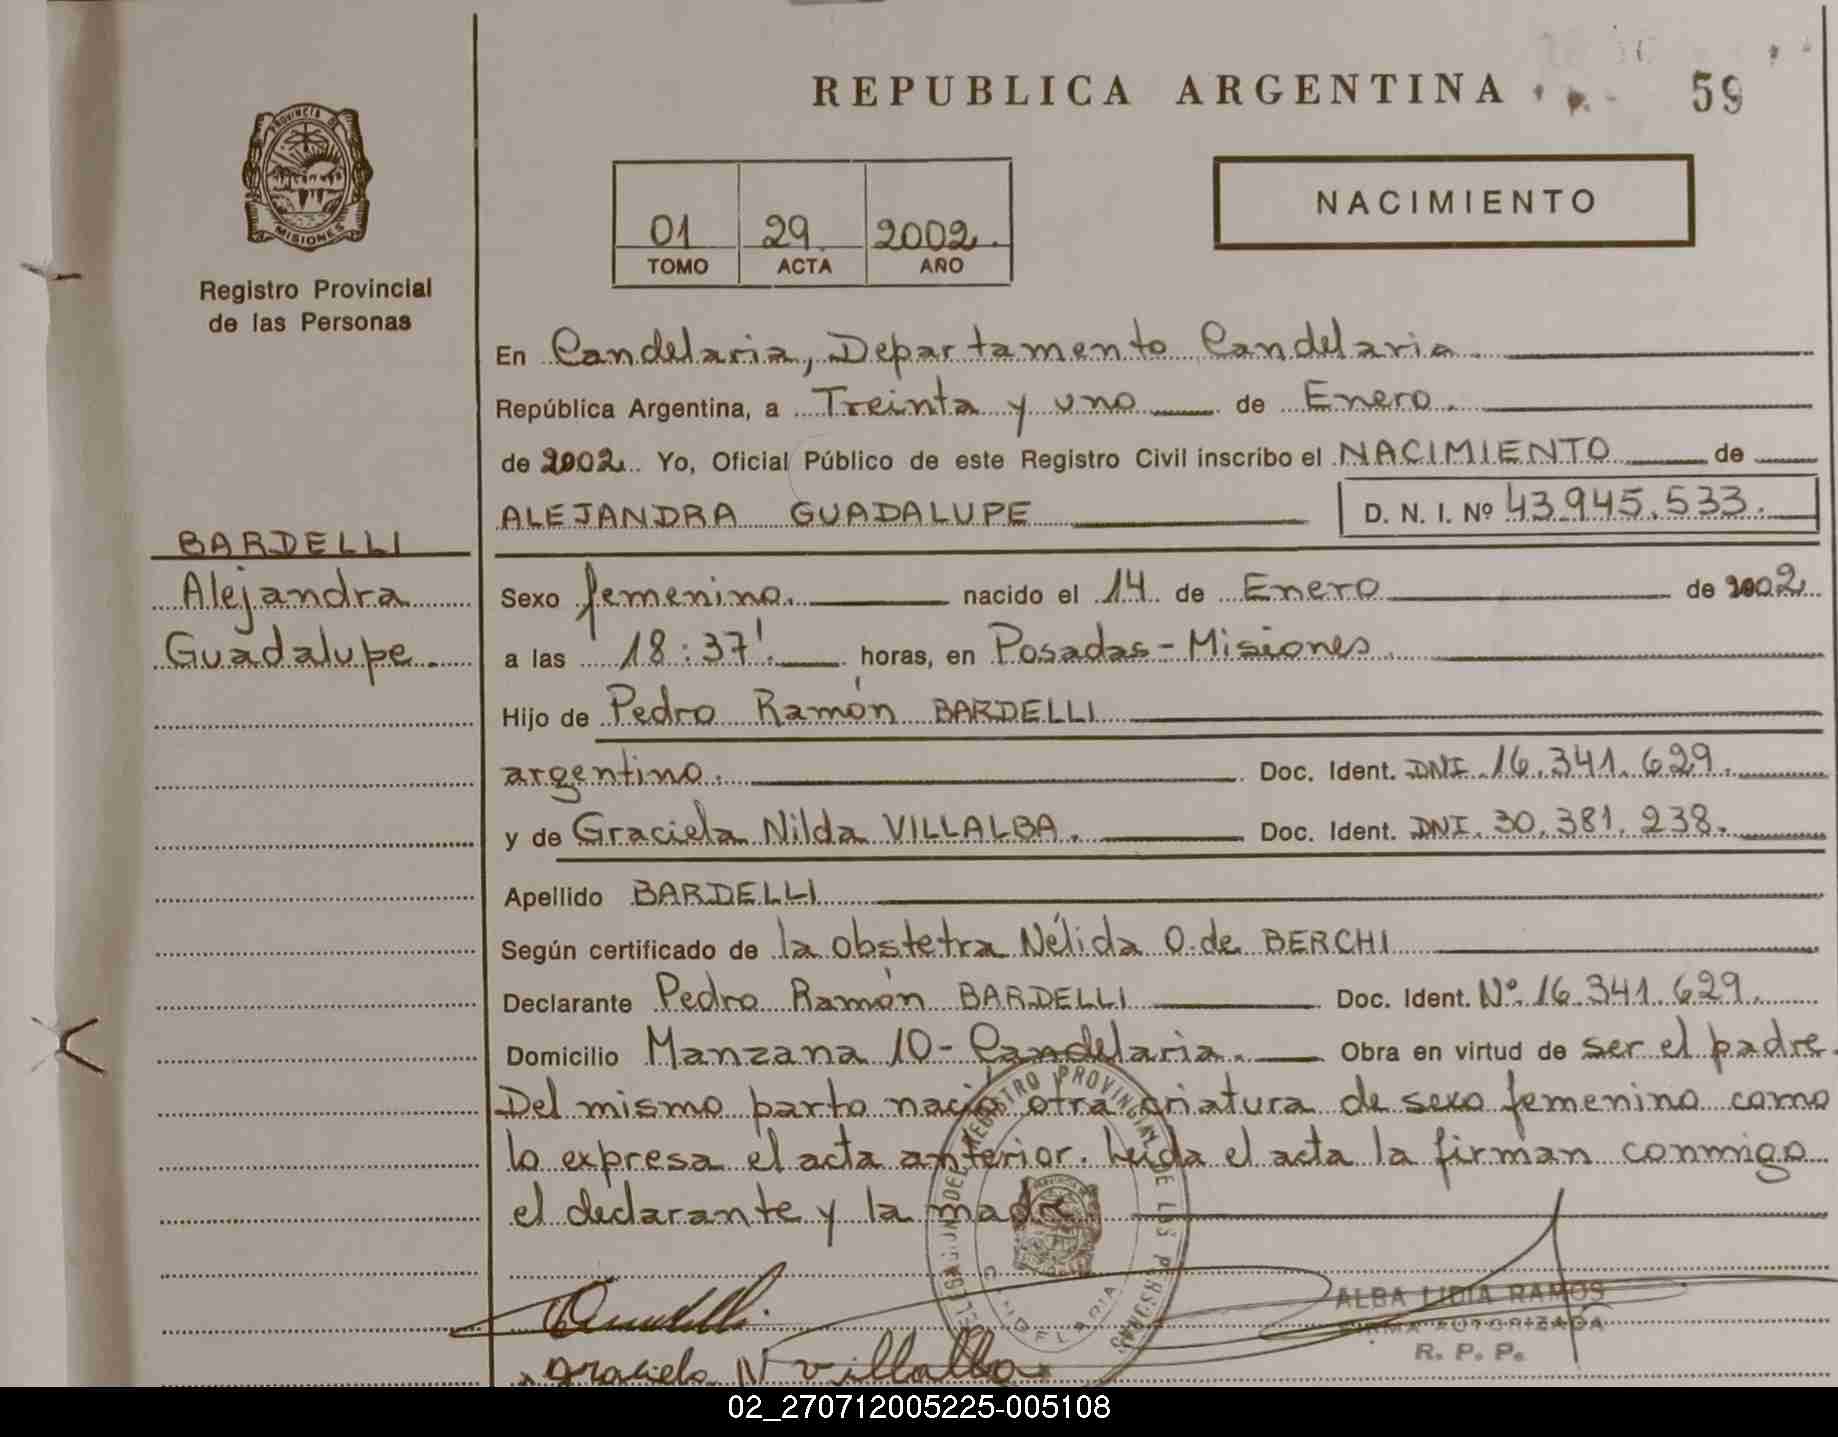 REPUBLICA ARGENTINA
59
PROVINCIA DE
MISIONES
Registro Provincial
de las Personas
01 29 2002.
TOMO ACTA AÑO
NACIMIENTO
En Candelaria, Departamento Candelaria.
República Argentina, a Treinta y uno de Enero.
de 2002. Yo, Oficial Público de este Registro Civil inscribo el NACIMIENTO de
ALEJANDRA GUADALUPE D. N. I. Nº 43.945.533.
BARDELLI
Alejandra
Guadalupe.
Sexo femenino. nacido el 14 de Enero de 2002.
a las 18:37'. horas, en Posadas - Misiones.
Hijo de Pedro Ramón BARDELLI
argentino. Doc. Ident. DNI. 16.341.629.
y de Graciela Nilda VILLALBA. Doc. Ident. DNI. 30.381.238.
Apellido BARDELLI
Según certificado de la obstetra Nélida O. de BERCHI
Declarante Pedro Ramón BARDELLI Doc. Ident. Nº 16.341.629.
Domicilio Manzana 10 - Candelaria. Obra en virtud de ser el padre.
Del mismo parto nació otra criatura de sexo femenino como
lo expresa el acta anterior. Leída el acta la firman conmigo
el declarante y la madre
REGISTRO PROVINCIAL DE LAS PERSONAS
CANDELARIA
ALBA LIDIA RAMOS
FIRMA AUTORIZADA
R. P. P.
Graciela N Villalba
02_270712005225-005108